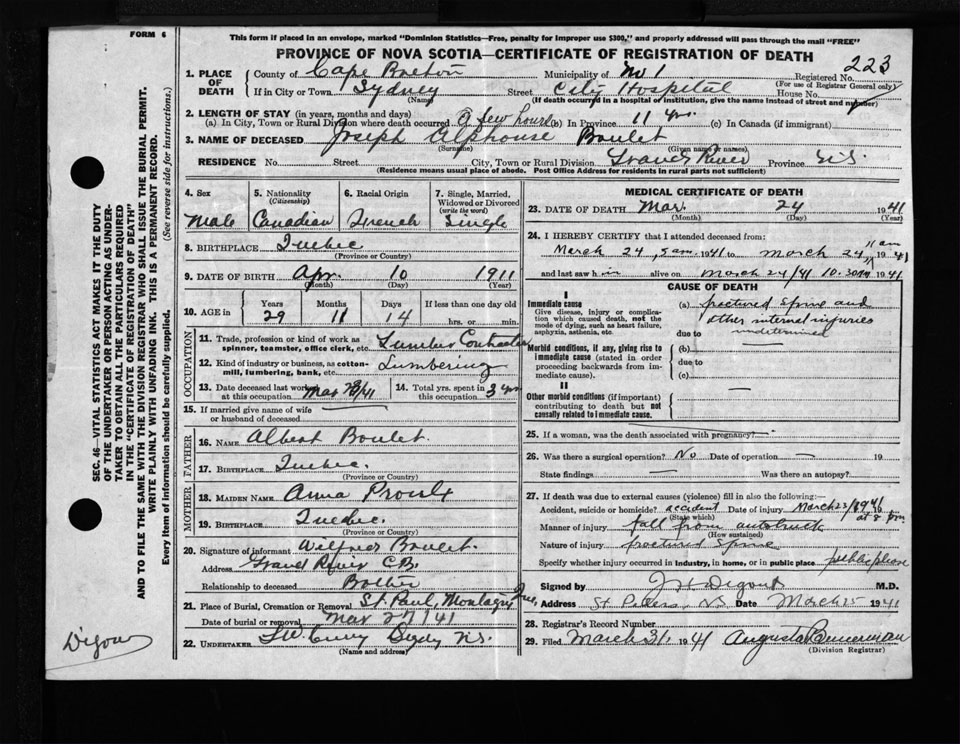 FORM 6
This form if placed in an envelope, marked "Dominion Statistics—Free, penalty for improper use $300," and properly addressed will pass through the mail "FREE"
PROVINCE OF NOVA SCOTIA—CERTIFICATE OF REGISTRATION OF DEATH
SEC. 46—VITAL STATISTICS ACT MAKES IT THE DUTY
OF THE UNDERTAKER OR PERSON ACTING AS UNDER-
TAKER TO OBTAIN ALL THE PARTICULARS REQUIRED
IN THE "CERTIFICATE OF REGISTRATION OF DEATH"
AND TO FILE THE SAME WITH THE DIVISION REGISTRAR WHO SHALL ISSUE THE BURIAL PERMIT.
WRITE PLAINLY WITH UNFADING INK. THIS IS A PERMANENT RECORD.
Every item of information should be carefully supplied. (See reverse side for instructions.)
1. PLACE OF DEATH County of Cape Breton Municipality of No 1 Registered No. 223
(For use of Registrar General only)
If in City or Town Sydney Street City Hospital House No.
(Name) (If death occurred in a hospital or institution, give the name instead of street and number)
2. LENGTH OF STAY (in years, months and days)
(a) In City, Town or Rural Division where death occurred a few hours (b) In Province 11 yrs. (c) In Canada (if immigrant)
3. NAME OF DECEASED Joseph Alphonse Boulet
(Surname) (Given name or names)
RESIDENCE No. Street City, Town or Rural Division Grand River Province N.S.
(Residence means usual place of abode. Post Office Address for residents in rural parts not sufficient)
4. Sex 5. Nationality (Citizenship) 6. Racial Origin 7. Single, Married, Widowed or Divorced (write the word)
Male Canadian French Single
8. BIRTHPLACE Quebec
(Province or Country)
9. DATE OF BIRTH Apr. 10 1911
(Month) (Day) (Year)
10. AGE in Years Months Days If less than one day old
29 11 14 hrs. or min.
OCCUPATION
11. Trade, profession or kind of work as spinner, teamster, office clerk, etc. Lumber Contractor
12. Kind of industry or business, as cotton-mill, lumbering, bank, etc. Lumbering
13. Date deceased last worked at this occupation Mar 23/41 14. Total yrs. spent in this occupation 3 yrs
15. If married give name of wife or husband of deceased
FATHER
16. NAME Albert Boulet
17. BIRTHPLACE Quebec.
(Province or Country)
MOTHER
18. MAIDEN NAME Anna Proulx
19. BIRTHPLACE Quebec.
(Province or Country)
20. Signature of informant Wilfred Boulet.
Address Grand River C.B.
Relationship to deceased Brother
21. Place of Burial, Cremation or Removal St. Paul Montagny Que.
Date of burial or removal Mar 27/41
22. UNDERTAKER Sydney N.S.
(Name and address)
MEDICAL CERTIFICATE OF DEATH
23. DATE OF DEATH Mar. 24 1941
(Month) (Day) (Year)
24. I HEREBY CERTIFY that I attended deceased from:
March 24, 5 am. 1941 to March 24 11 am 1941
and last saw him alive on March 24/41 10.30 AM 1941
CAUSE OF DEATH
I
Immediate cause
Give disease, injury or complication which caused death, not the mode of dying, such as heart failure, asphyxia, asthenia, etc.
(a) fractured spine and
other internal injuries
due to undetermined
Morbid conditions, if any, giving rise to immediate cause (stated in order proceeding backwards from immediate cause).
(b)
due to
(c)
II
Other morbid conditions (if important) contributing to death but not causally related to immediate cause.
25. If a woman, was the death associated with pregnancy?
26. Was there a surgical operation? No Date of operation — 19
State findings — Was there an autopsy?
27. If death was due to external causes (violence) fill in also the following:—
Accident, suicide or homicide? accident Date of injury March 23/1941
(State which) at 8 pm
Manner of injury fall from autotruck
(How sustained)
Nature of injury fractured spine
Specify whether injury occurred in industry, in home, or in public place public place
Signed by M.D.
Address St. Peters, N.S. Date March 25 1941
28. Registrar's Record Number
29. Filed March 31, 1941 Augusta Bannerman
(Division Registrar)